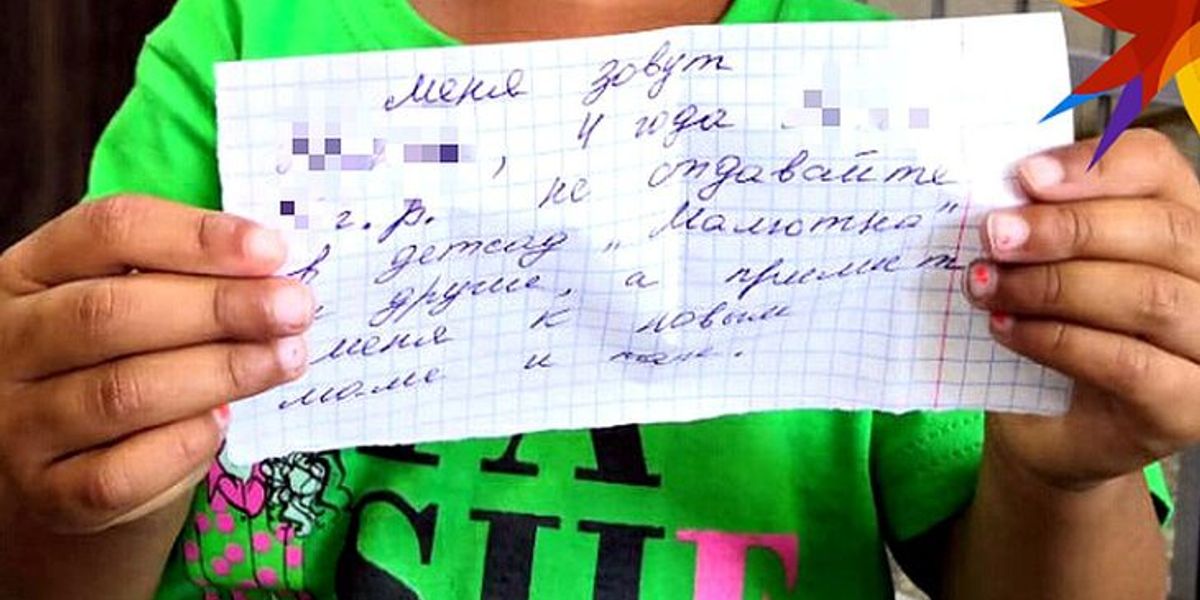 Меня зовут
, 4 года
г. р. не отдавайте
в детсад „Малютка"
и другие, а примит
меня к новым
маме и папе.
SHE